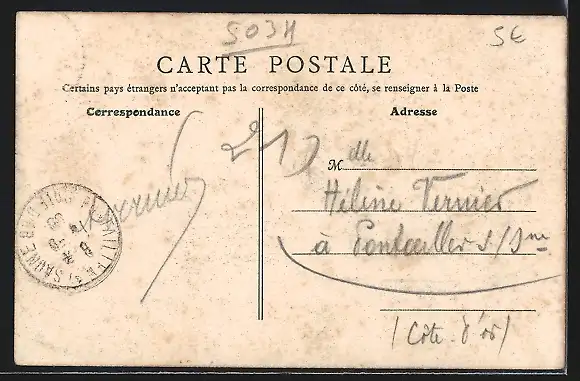 503H
5€
CARTE POSTALE
Certains pays étrangers n'acceptant pas la correspondance de ce côté, se renseigner à la Poste
Correspondance
Adresse
Melle
Hélène Vernier
à Pontailler s/Sne
(Côte-d'or)